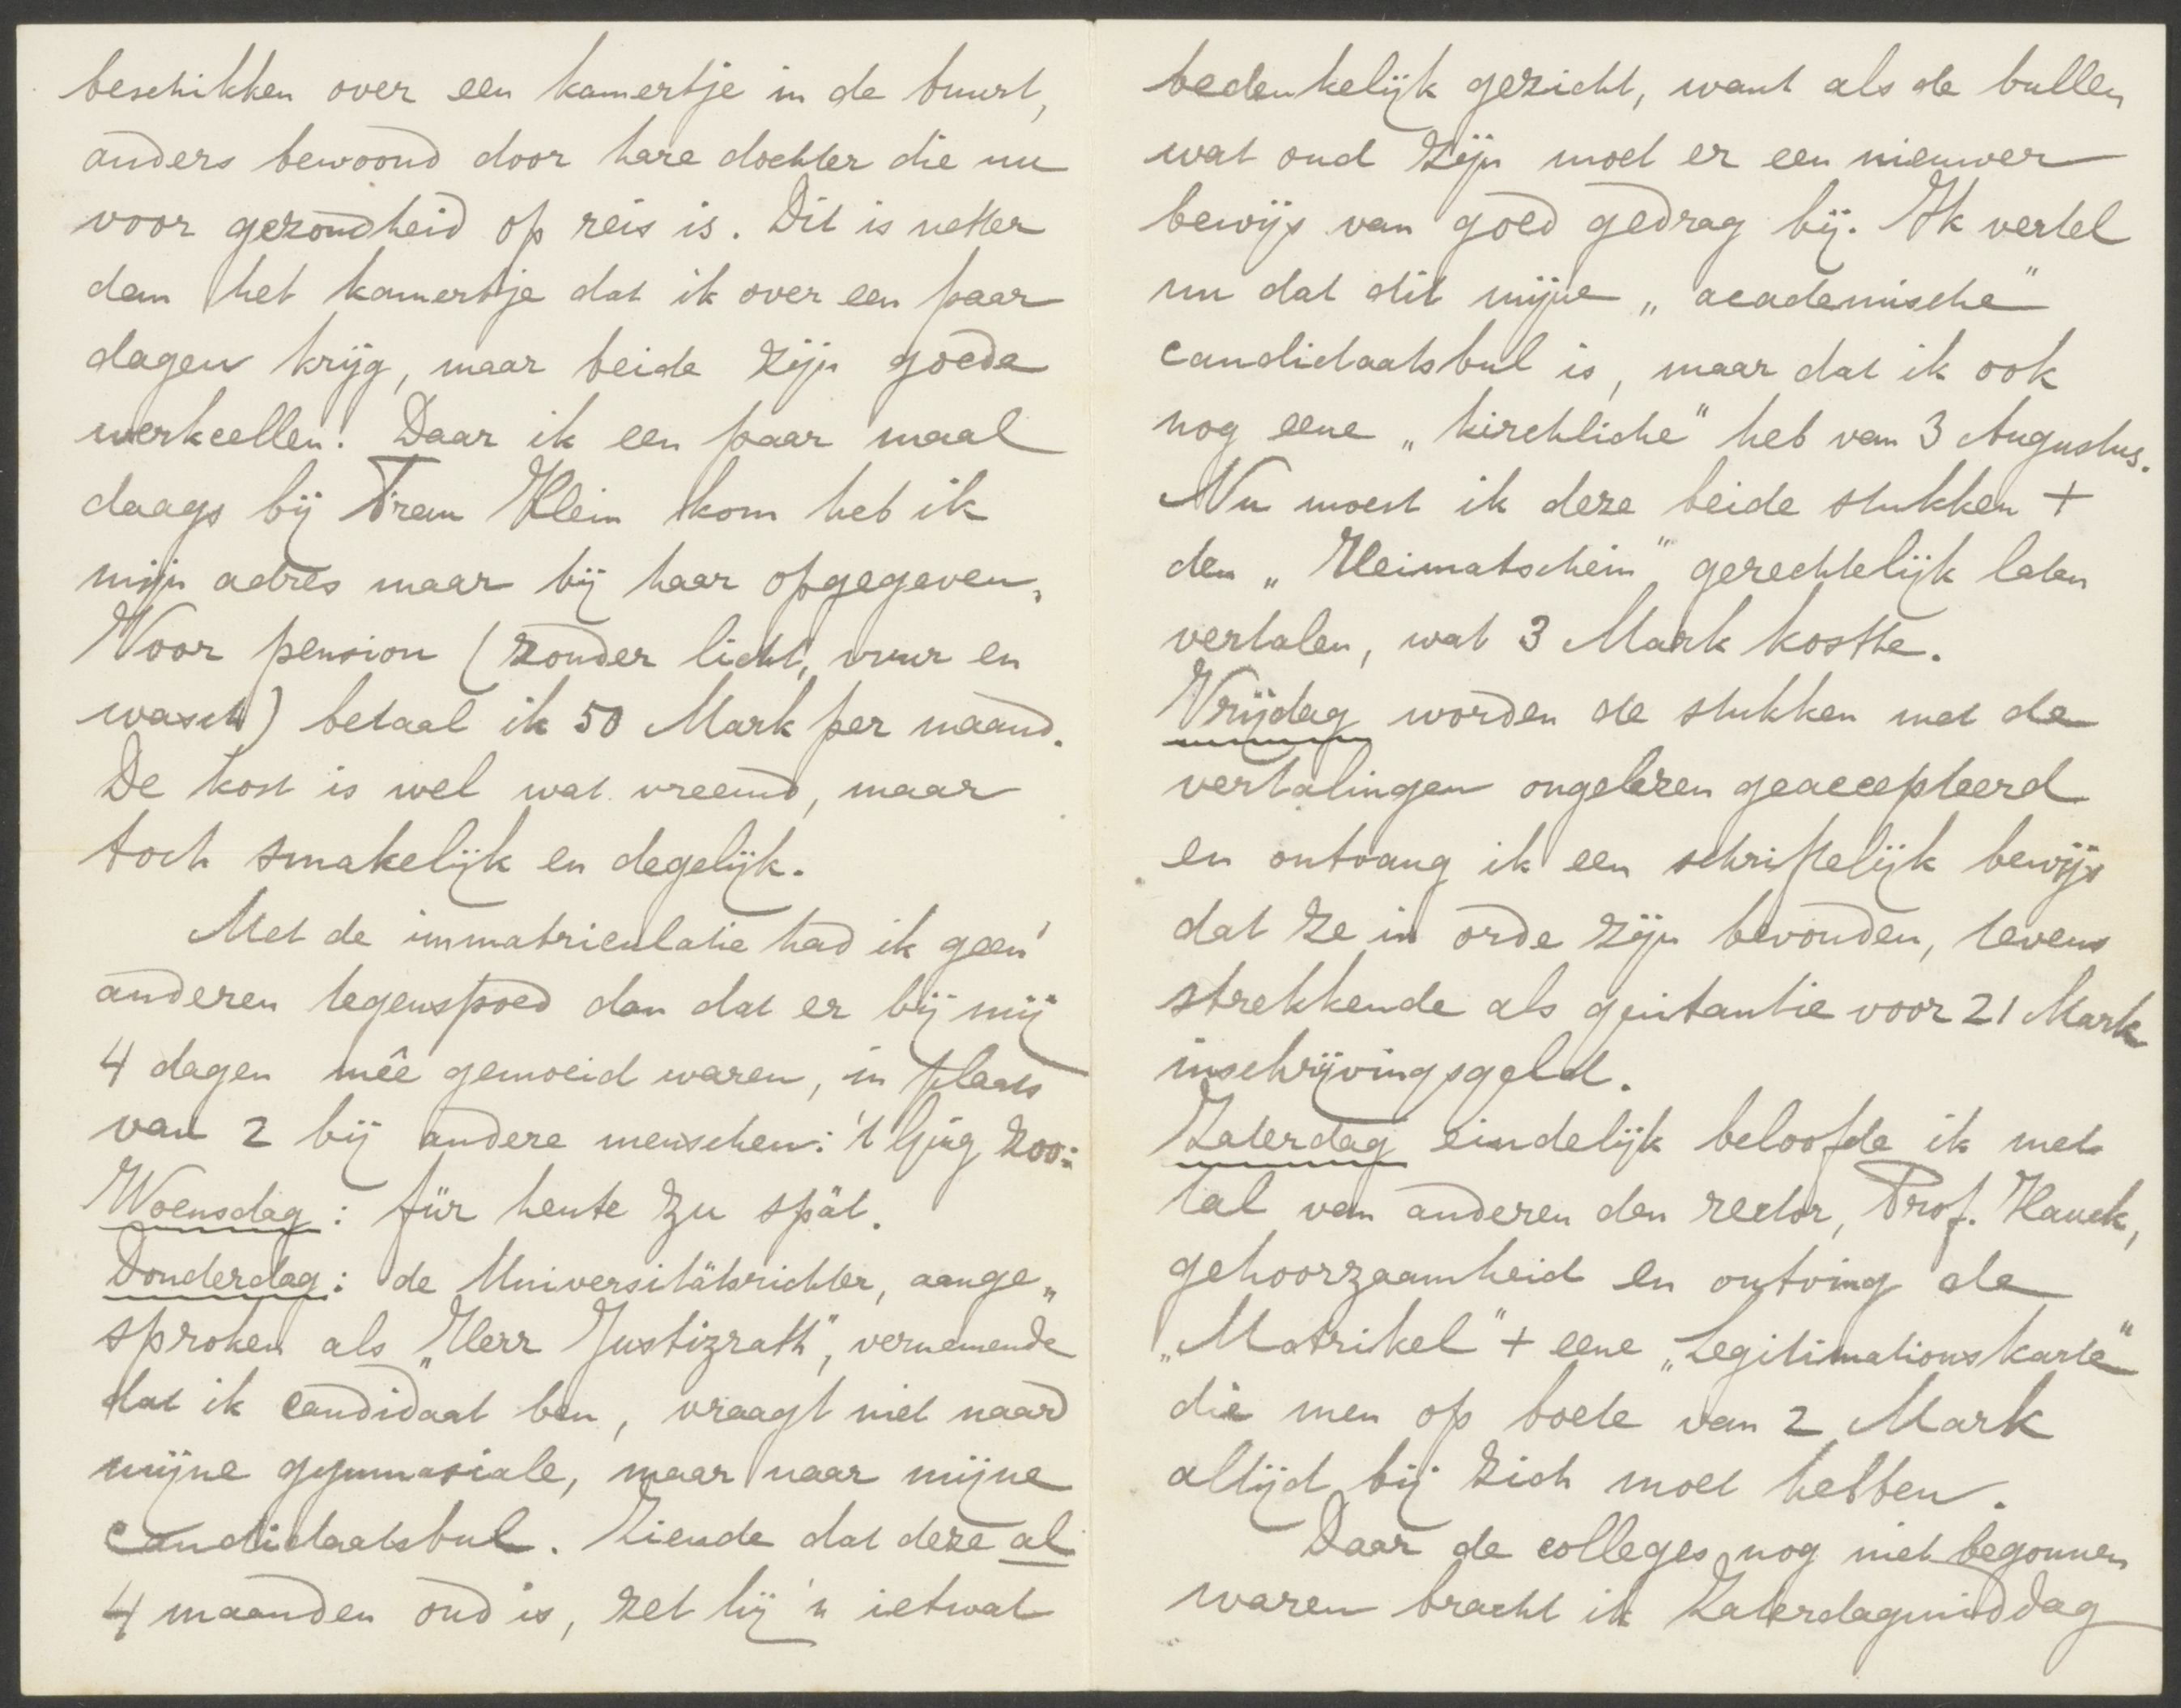 beschikken over een kamertje in de buurt,
anders bewoond door hare dochter die nu
voor gezondheid op reis is. Dit is netter
dan het kamertje dat ik over een paar
dagen krijg, maar beide zijn goede
werkcellen! Daar ik een paar maal
daags bij Frau Klein kom heb ik
mijn adres maar bij haar opgegeven.
Voor pension (zonder licht, vuur en
wasch) betaal ik 50 Mark per maand.
De kost is wel wat vreemd, maar
toch smakelijk en degelijk.
Met de immatriculatie had ik geen
anderen tegenspoed dan dat er bij mij
4 dagen mêe gemoeid waren, in plaats
van 2 bij andere menschen: 't ging zoo:
Woensdag: für heute zu spät.
Donderdag: de Universitätsrichter, aange„
sproken als „Herr Justizrath", vernemende
dat ik candidaat ben, vraagt niet naar
mijne gymnasiale, maar naar mijne
candidaatsbul. Ziende dat deze al
4 maanden oud is, zet hij 'n ietwat
bedenkelijk gezicht, want als de bullen
wat oud zijn moet er een nieuwer
bewijs van goed gedrag bij. Ik vertel
nu dat dit mijne „academische"
candidaatsbul is, maar dat ik ook
nog eene „kirchliche" heb van 3 Augustus.
Nu moest ik deze beide stukken +
den „Heimatschein" gerechtelijk laten
vertalen, wat 3 Mark kostte.
Vrijdag worden de stukken met de
vertalingen ongelezen geaccepteerd
en ontvang ik een schriftelijk bewijs
dat ze in orde zijn bevonden, tevens
strekkende als quitantie voor 21 Mark
inschrijvingsgeld.
Zaterdag eindelijk beloofde ik met
tal van anderen den rector, Prof. Hauck,
gehoorzaamheid en ontving de
„Matrikel" + eene „Legitimationskarte"
die men op boete van 2 Mark
altijd bij zich moet hebben.
Daar de colleges nog niet begonnen
waren bracht ik Zaterdagmiddag